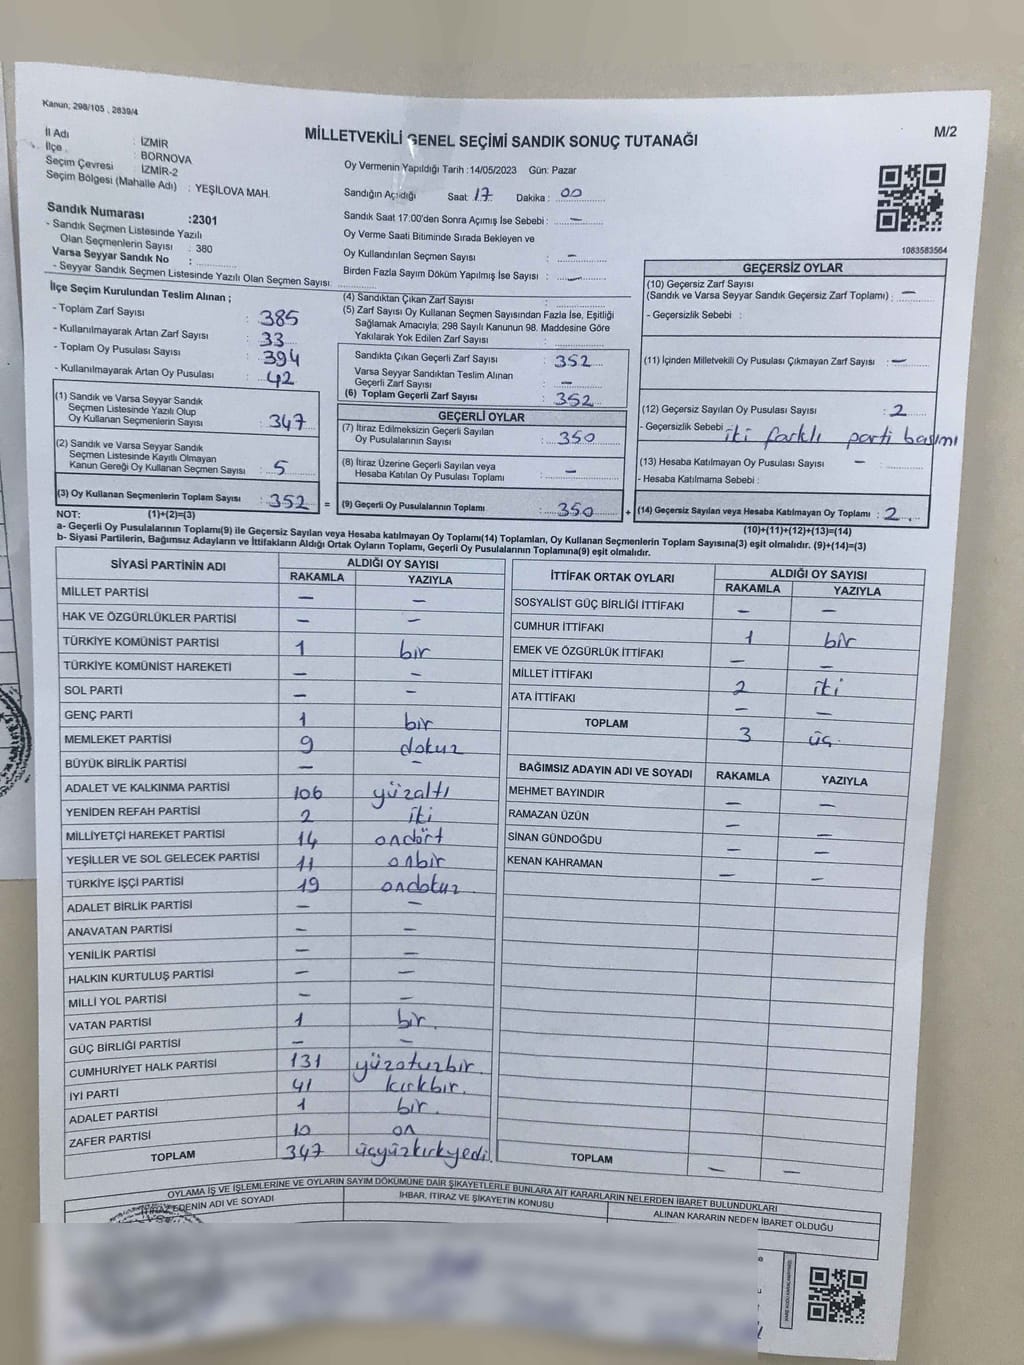 Kanun; 298/105 , 2839/4
MİLLETVEKİLİ GENEL SEÇİMİ SANDIK SONUÇ TUTANAĞI
M/2
İl Adı : İZMİR
İlçe : BORNOVA
Seçim Çevresi : İZMİR-2
Seçim Bölgesi (Mahalle Adı) : YEŞİLOVA MAH.
Sandık Numarası :2301
- Sandık Seçmen Listesinde Yazılı
Olan Seçmenlerin Sayısı : 380
Varsa Seyyar Sandık No :
- Seyyar Sandık Seçmen Listesinde Yazılı Olan Seçmen Sayısı:
Oy Vermenin Yapıldığı Tarih :14/05/2023 Gün: Pazar
Sandığın Açıldığı Saat: 17 Dakika : 00
Sandık Saat 17.00'den Sonra Açımış İse Sebebi : —
Oy Verme Saati Bitiminde Sırada Bekleyen ve
Oy Kullandırılan Seçmen Sayısı : —
Birden Fazla Sayım Döküm Yapılmış İse Sayısı : —
1083583564
İlçe Seçim Kurulundan Teslim Alınan ;
- Toplam Zarf Sayısı : 385
- Kullanılmayarak Artan Zarf Sayısı : 33
- Toplam Oy Pusulası Sayısı : 394
- Kullanılmayarak Artan Oy Pusulası : 42
(1) Sandık ve Varsa Seyyar Sandık
Seçmen Listesinde Yazılı Olup
Oy Kullanan Seçmenlerin Sayısı : 347
(2) Sandık ve Varsa Seyyar Sandık
Seçmen Listesinde Kayıtlı Olmayan
Kanun Gereği Oy Kullanan Seçmen Sayısı : 5
(3) Oy Kullanan Seçmenlerin Toplam Sayısı : 352 =
(4) Sandıktan Çıkan Zarf Sayısı :
(5) Zarf Sayısı Oy Kullanan Seçmen Sayısından Fazla İse, Eşitliği
Sağlamak Amacıyla; 298 Sayılı Kanunun 98. Maddesine Göre
Yakılarak Yok Edilen Zarf Sayısı :
Sandıkta Çıkan Geçerli Zarf Sayısı : 352
Varsa Seyyar Sandıktan Teslim Alınan
Geçerli Zarf Sayısı : —
(6) Toplam Geçerli Zarf Sayısı : 352
GEÇERLİ OYLAR
(7) İtiraz Edilmeksizin Geçerli Sayılan
Oy Pusulalarının Sayısı : 350
(8) İtiraz Üzerine Geçerli Sayılan veya
Hesaba Katılan Oy Pusulası Toplamı : —
(9) Geçerli Oy Pusulalarının Toplamı : 350 +
GEÇERSİZ OYLAR
(10) Geçersiz Zarf Sayısı
(Sandık ve Varsa Seyyar Sandık Geçersiz Zarf Toplamı) : —
- Geçersizlik Sebebi :
(11) İçinden Milletvekili Oy Pusulası Çıkmayan Zarf Sayısı : —
(12) Geçersiz Sayılan Oy Pusulası Sayısı : 2
- Geçersizlik Sebebi : iki farklı parti basımı
(13) Hesaba Katılmayan Oy Pusulası Sayısı — :
- Hesaba Katılmama Sebebi :
(14) Geçersiz Sayılan veya Hesaba Katılmayan Oy Toplamı : 2
NOT: (1)+(2)=(3)
(10)+(11)+(12)+(13)=(14)
a- Geçerli Oy Pusulalarının Toplamı(9) ile Geçersiz Sayılan veya Hesaba katılmayan Oy Toplamı(14) Toplamları, Oy Kullanan Seçmenlerin Toplam Sayısına(3) eşit olmalıdır. (9)+(14)=(3)
b- Siyasi Partilerin, Bağımsız Adayların ve İttifakların Aldığı Ortak Oyların Toplamı, Geçerli Oy Pusulalarının Toplamına(9) eşit olmalıdır.
SİYASİ PARTİNİN ADI ALDIĞI OY SAYISI
RAKAMLA YAZIYLA
MİLLET PARTİSİ — —
HAK VE ÖZGÜRLÜKLER PARTİSİ — —
TÜRKİYE KOMÜNİST PARTİSİ 1 bir
TÜRKİYE KOMÜNİST HAREKETİ — —
SOL PARTİ — —
GENÇ PARTİ 1 bir
MEMLEKET PARTİSİ 9 dokuz
BÜYÜK BİRLİK PARTİSİ — —
ADALET VE KALKINMA PARTİSİ 106 yüzaltı
YENİDEN REFAH PARTİSİ 2 iki
MİLLİYETÇİ HAREKET PARTİSİ 14 ondört
YEŞİLLER VE SOL GELECEK PARTİSİ 11 onbir
TÜRKİYE İŞÇİ PARTİSİ 19 ondokuz
ADALET BİRLİK PARTİSİ — —
ANAVATAN PARTİSİ — —
YENİLİK PARTİSİ — —
HALKIN KURTULUŞ PARTİSİ — —
MİLLİ YOL PARTİSİ — —
VATAN PARTİSİ 1 bir.
GÜÇ BİRLİĞİ PARTİSİ — —
CUMHURİYET HALK PARTİSİ 131 yüzotuzbir.
İYİ PARTİ 41 kırkbir.
ADALET PARTİSİ 1 bir.
ZAFER PARTİSİ 10 on
TOPLAM 347 üçyüzkırkyedi.
İTTİFAK ORTAK OYLARI ALDIĞI OY SAYISI
RAKAMLA YAZIYLA
SOSYALİST GÜÇ BİRLİĞİ İTTİFAKI — —
CUMHUR İTTİFAKI 1 bir
EMEK VE ÖZGÜRLÜK İTTİFAKI — —
MİLLET İTTİFAKI 2 iki
ATA İTTİFAKI — —
TOPLAM 3 üç.
BAĞIMSIZ ADAYIN ADI VE SOYADI RAKAMLA YAZIYLA
MEHMET BAYINDIR — —
RAMAZAN ÜZÜN — —
SİNAN GÜNDOĞDU — —
KENAN KAHRAMAN — —
TOPLAM — —
OYLAMA İŞ VE İŞLEMLERİNE VE OYLARIN SAYIM DÖKÜMÜNE DAİR ŞİKAYETLERLE BUNLARA AİT KARARLARIN NELERDEN İBARET BULUNDUKLARI
EDENİN ADI VE SOYADI İHBAR, İTİRAZ VE ŞİKAYETİN KONUSU ALINAN KARARIN NEDEN İBARET OLDUĞU